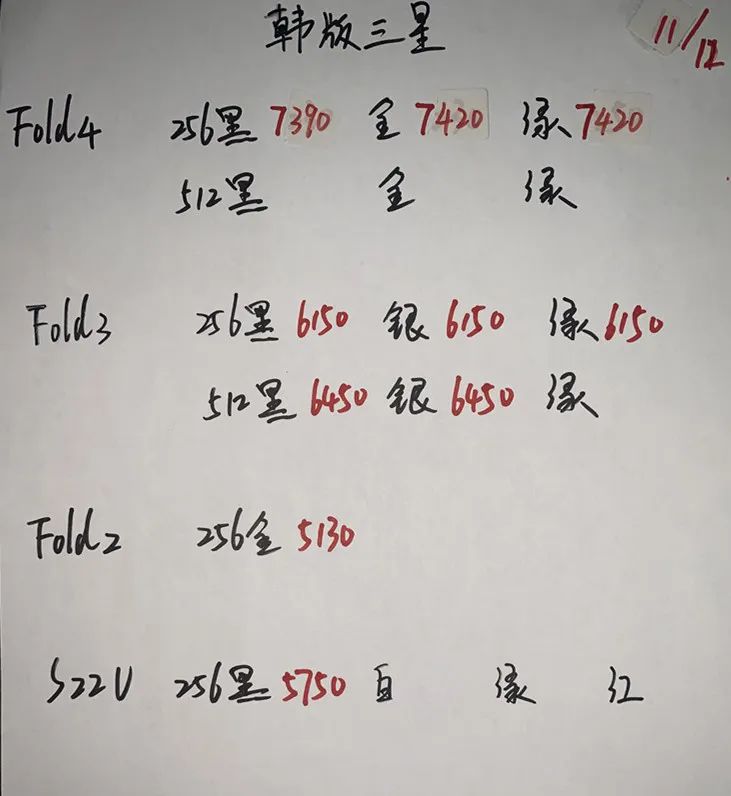 韩版三星
11/12
Fold4 256黑 7390 金 7420 绿 7420
512黑 金 绿
Fold3 256黑 6150 银 6150 绿 6150
512黑 6450 银 6450 绿
Fold2 256金 5130
S22U 256黑 5750 白 绿 红